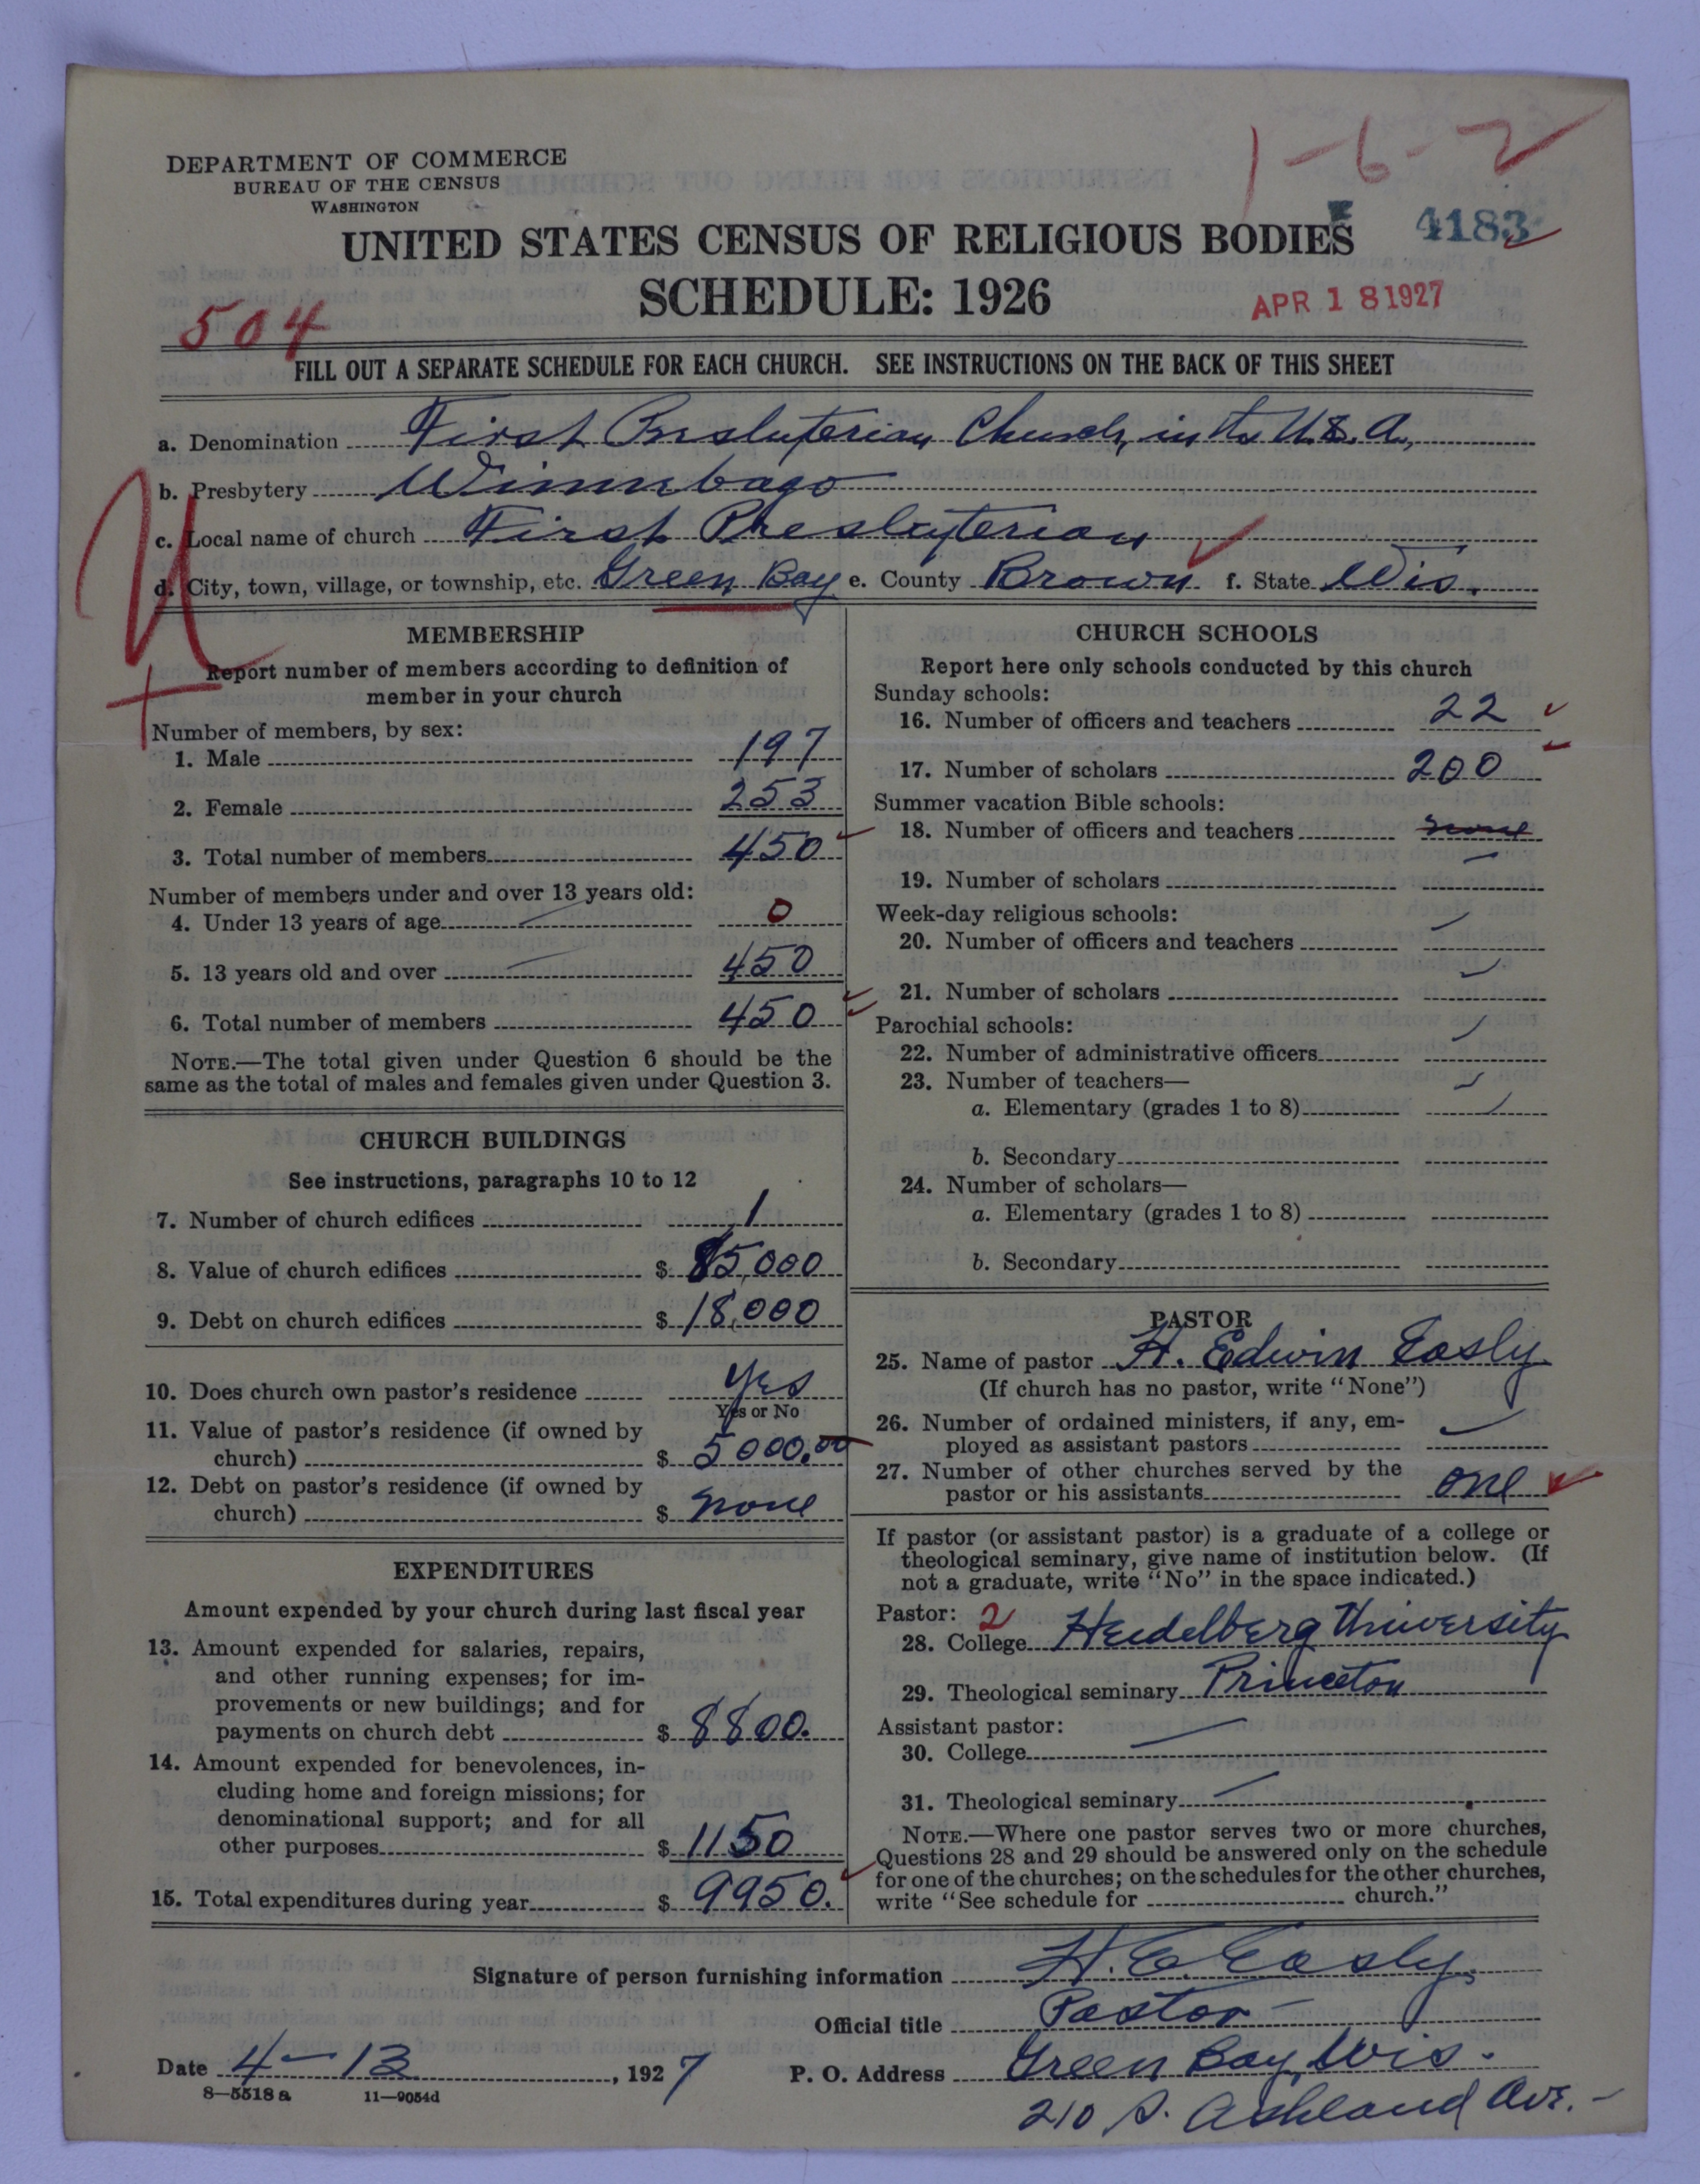 1-6-2
DEPARTMENT OF COMMERCE
BUREAU OF THE CENSUS
WASHINGTON
UNITED STATES CENSUS OF RELIGIOUS BODIES 4183
SCHEDULE: 1926
APR 18 1927
504
FILL OUT A SEPARATE SCHEDULE FOR EACH CHURCH. SEE INSTRUCTIONS ON THE BACK OF THIS SHEET
a. Denomination First Presbyterian Church, in the U.S.A.,
b. Presbytery Winnebago
c. Local name of church First Presbyterian
d. City, town, village, or township, etc. Green Bay e. County Brown f. State Wis.
MEMBERSHIP
Report number of members according to definition of
member in your church
Number of members, by sex:
1. Male 197
2. Female 253
3. Total number of members 450
Number of members under and over 13 years old:
4. Under 13 years of age 0
5. 13 years old and over 450
6. Total number of members 450
NOTE.—The total given under Question 6 should be the
same as the total of males and females given under Question 3.
CHURCH BUILDINGS
See instructions, paragraphs 10 to 12
7. Number of church edifices 1
8. Value of church edifices $ 85,000
9. Debt on church edifices $ 18,000
10. Does church own pastor's residence Yes
Yes or No
11. Value of pastor's residence (if owned by
church) $ 5000.00
12. Debt on pastor's residence (if owned by
church) $ none
EXPENDITURES
Amount expended by your church during last fiscal year
13. Amount expended for salaries, repairs,
and other running expenses; for im-
provements or new buildings; and for
payments on church debt $ 8800.
14. Amount expended for benevolences, in-
cluding home and foreign missions; for
denominational support; and for all
other purposes $ 1150
15. Total expenditures during year $ 9950.
CHURCH SCHOOLS
Report here only schools conducted by this church
Sunday schools:
16. Number of officers and teachers 22
17. Number of scholars 200
Summer vacation Bible schools:
18. Number of officers and teachers none
19. Number of scholars
Week-day religious schools:
20. Number of officers and teachers
21. Number of scholars
Parochial schools:
22. Number of administrative officers
23. Number of teachers—
a. Elementary (grades 1 to 8)
b. Secondary
24. Number of scholars—
a. Elementary (grades 1 to 8)
b. Secondary
PASTOR
25. Name of pastor H. Edwin Easly
(If church has no pastor, write "None")
26. Number of ordained ministers, if any, em-
ployed as assistant pastors
27. Number of other churches served by the
pastor or his assistants one
If pastor (or assistant pastor) is a graduate of a college or
theological seminary, give name of institution below. (If
not a graduate, write "No" in the space indicated.)
Pastor: 2
28. College Heidelberg University
29. Theological seminary Princeton
Assistant pastor:
30. College
31. Theological seminary
NOTE.—Where one pastor serves two or more churches,
Questions 28 and 29 should be answered only on the schedule
for one of the churches; on the schedules for the other churches,
write "See schedule for church."
Signature of person furnishing information H. E. Easly.
Official title Pastor
Date 4-13, 1927 P. O. Address Green Bay, Wis.
8—5518 a 11—9054d
210 S. Ashland Ave.